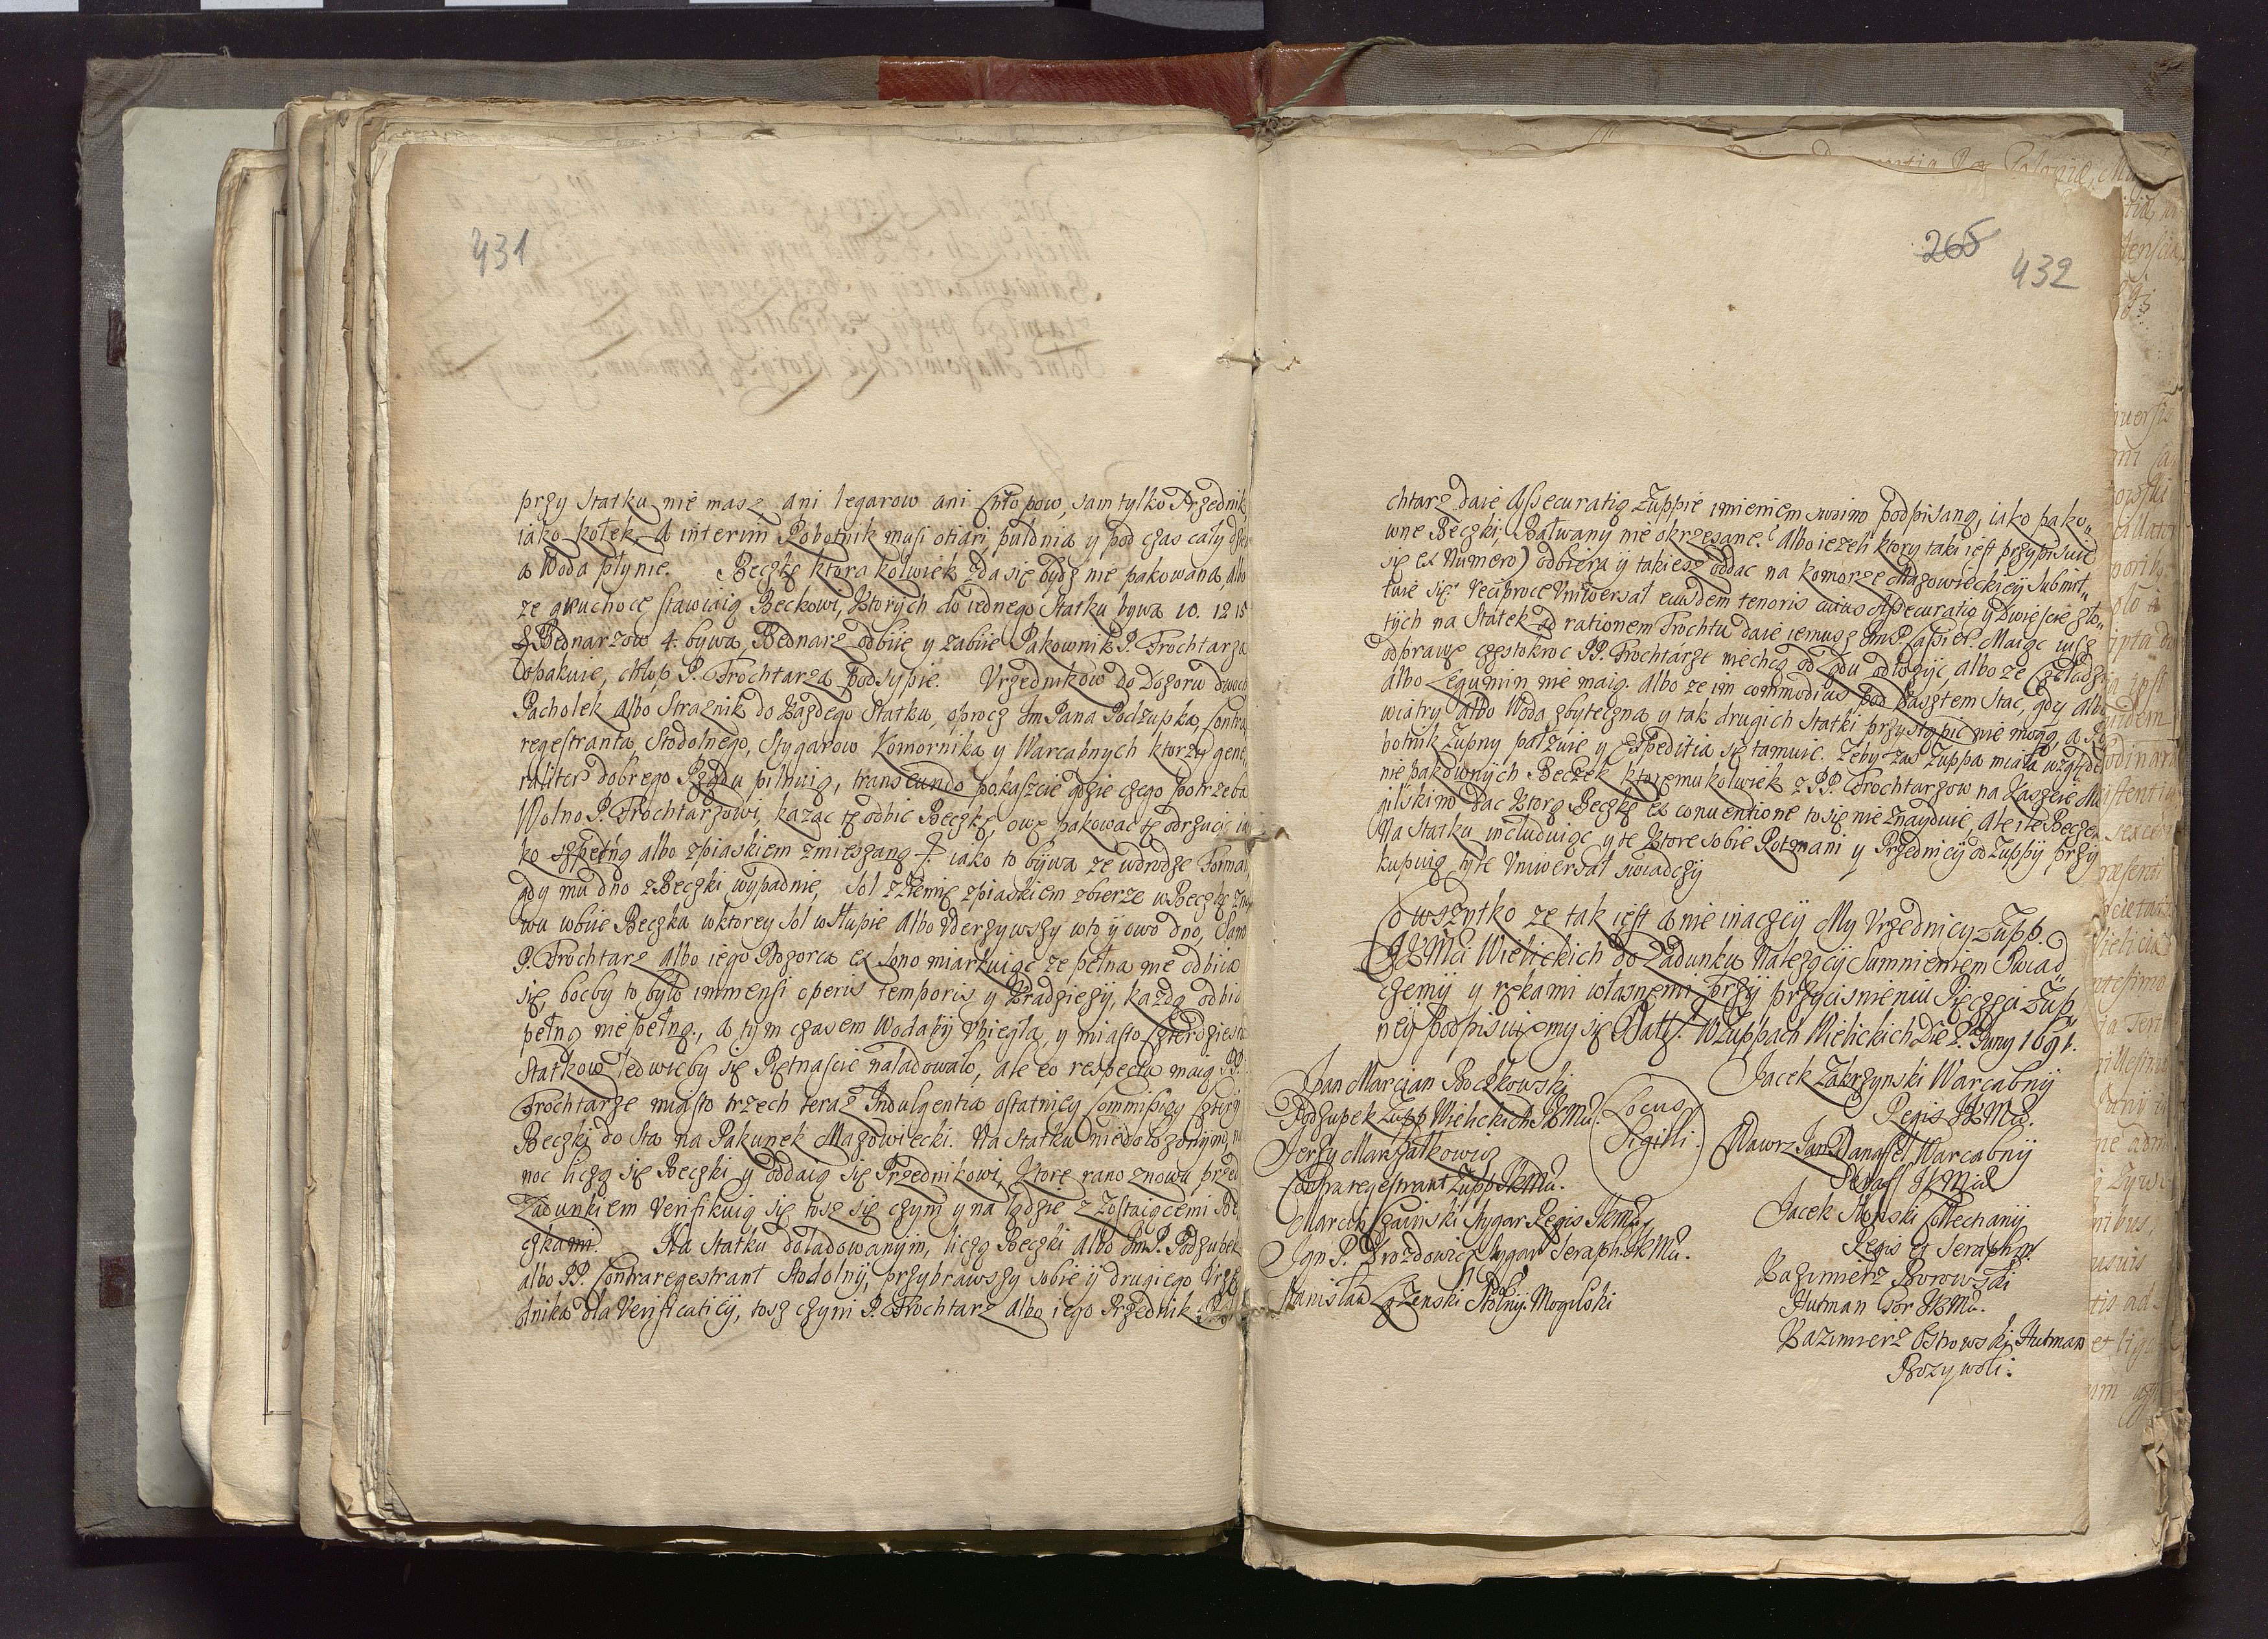 431
przy Statku nie masz ani legarow ani Chłopow, sam tylko Przednik
iako kołek, A interim Robotnik musi otiari pułdnia y pod czas cały dzien
a Woda płynie. Beczkę ktora kolwiek zda się bydz nie pakowana, albo
ze głuchoce stawiaią Beckowi, Ktorych do iednego Statku bywa 10. 12 15
& Bednarzow 4. bywa, Bednarz odbiie y zabiie Pakownik P. Frochtarza
dopakuie, chłop P. Frochtarza podsypie. Vrzednikow do Dozoru dwoch
Pacholek Albo Straznik do Każdego Statku, oprocz Im Pana Podzupka, Contra
regestranta, Stodolnego, Stygarow Komornika y Warcabnych ktorzy gene„
raliter dobrego Rządu pilnuią, transeundo pokaszcie gdzie czego potrzeba
Wolno P. Frochtarzowi, kazac tę odbic Beczkę, owę pakowac tę odrzucic ia
ko szpetną albo z piaskiem zmieszaną iako to bywa ze wdrodze Forman
gdy mu dno z Beczki wypadnie, Sol z ziemię z piaskiem zbierze w Beczkę zno
wu wbiie Beczka w ktorey Sol w Słupie Albo Vderzywszy w to y owo dno, Sam
P. Frochtarz Albo iego Dozorca ex sono miarkuiąc ze pełna nie odbiia
się, bo by to było immensi operis temporis y Kradzieży, kazdą odbic
pełną nie pełną, a tym czasem Woda by vbiegła, y miasto czterdziestu
Statkow ledwie by się Piętnascie naładowało, ale eo respectu maią PP.
Frochtarze miasto trzech teraz Indulgentia ostatniey Commissiey cztery
Beczki do Sta na Pakunek Mazowiecki. Na Statku niedoładowanym na
noc liczą się Beczki y oddaią się Przednikowi, Ktore rano znowu przed
Ładunkiem Verifikuią się tosz się czyni y na lądzie z Zostaiącemi Be
czkami. Na Statku doładowanym, liczą Beczki Albo Im P. Podzupek
albo PP. Contraregestrant Stodolny, przybrawszy sobie y drugiego Vrzę
dnika dla Verificatiey, tosz czyni P. Frochtarz Albo iego Przednik
265
432
chtarz daie Assecuratią Zuppie imieniem swoim podpisaną, iako pako„
wne Beczki, Bałwany nie okrzesane. Albo iezeli ktory taki iest przypisuie
się ex Numero) odbiera y takiesz oddac na komorze Mazowieckiey Submit„
tuie się. Reciproce Vniwersał eiusdem tenoris cuius Assecuratio y Dwiescie zło„
tych na Statek ad rationem Frochtu daie iemusz Im P. Maiąc iusz
odprawę częstokroc PP. Frochtarze nie chcą od Lądu odłozyc Albo ze Czeladzi
Albo Legumin nie maią. Albo ze im commodius pod Kasztem Stac, gdy Albo
wiatry Albo Woda zbyteczna y tak drugich Statki przystąpic nie mogą, a Ro
botnik Zupny patzuie y Expeditia się tamuie. Zeby zas Zuppa miała wzgledem
nie pakownych Beczek ktoremukolwiek z PP. Frochtarzow na Kaszcie Mo
gilskim dac Ktorą Beczkę ex conuentione to się nie Znayduie, Ale ile Beczek
Na Statku includuiąc y te Ktore sobie Rotmani y Przednicy od Zuppy przy
kupuią tyle Vniwersał swiadczy
Co wszytko ze tak iest a nie inaczey My Vrzednicy Zupp.
JKMci Wielickich do Ładunku Nalezący Sumnieniem Swiad„
czemy y rękami własnemi przy przycisnieniu Pięczęci Zup„
ney Podpisuiemy się Datt. W Zuppach Wielickich Die 2. Juny 1691.
Jan Marcian Boczkowski
Podzupek Zupp Wielickich JKMci.
Jerzy Marszałkowicz
Contraregestrant Zupp JKMci.
Marcin Czainski Stygar Regis JKMci
Ign P. Drozdowicz Stygar Seraph. JKMci.
Stanisław Lęzenski Stolny Mogilski
Locus
Sigilli.
Jacek Zakrzynski Warcabny
Regis JKMci.
Wawrz Jan Danasel Warcabny
Seraff JKMci
Jacek Monski Collechany
Regis et Seraphin
Kazimierz Borowski
Hutman Gor JKMci.
Kazimierz Ostrowski Hutman
Bozy woli.